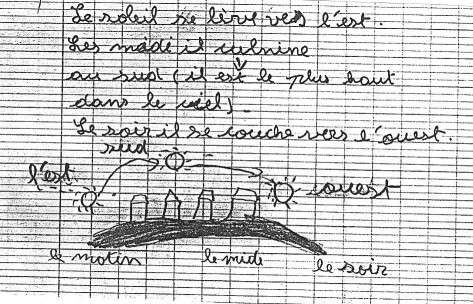 Le soleil se lève vers l'est.
Les midi il culmine
au sud (il est le plus haut
dans le ciel).
Le soir il se couche vers l'ouest.
sud
l'est
ouest
le matin le midi le soir